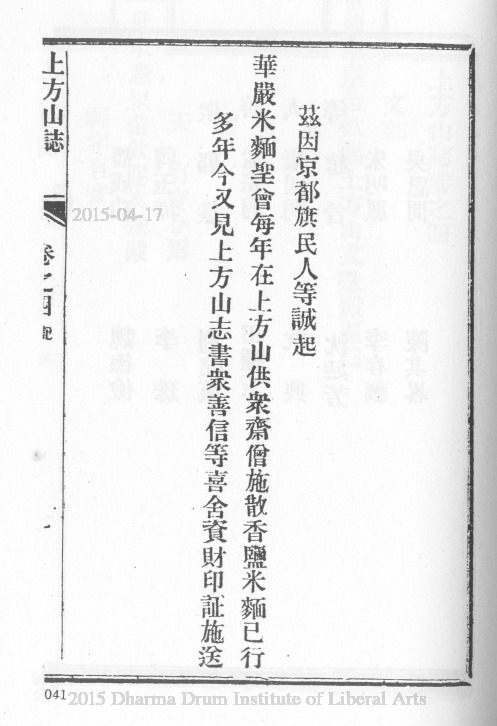 茲因京都旗民人等誠起
華嚴米麵聖會每年在上方山供衆齋僧施散香鹽米麵已行
多年今又見上方山志書衆善信等喜舍資財印証施送
上方山誌
卷之四 記
2015-04-17
041
2015 Dharma Drum Institute of Liberal Arts